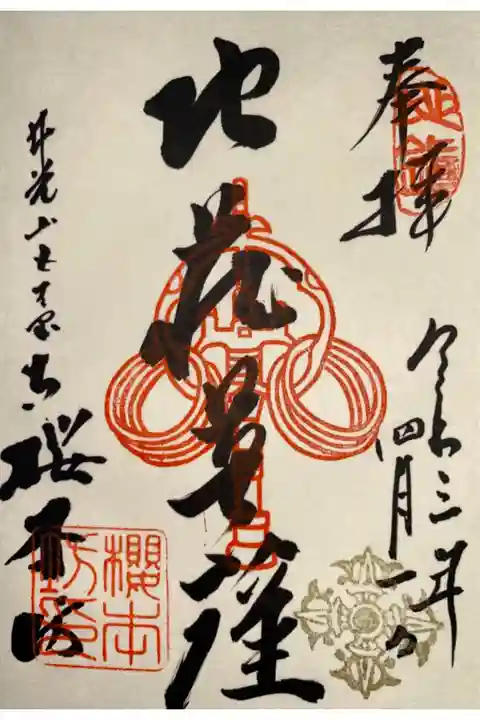 奉拝
令和三年
四月一日
地蔵菩薩
井光山
桜本坊
櫻本
坊印